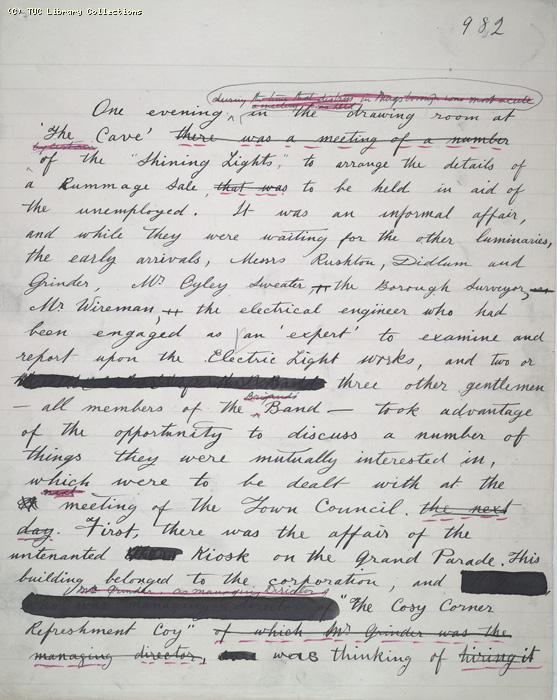 (C) TUC Library Collections
982
during the time that distress in Mugsborough was most acute
a meeting was held
One evening in the drawing room at
'The Cave' there was a meeting of a number
by certain
of the "Shining Lights", to arrange the details of
a Rummage Sale, that was to be held in aid of
the unemployed. It was an informal affair,
and while they were waiting for the other luminaries,
the early arrivals, Messrs Rushton, Didlum and
Grinder, Mr Oyley Sweater, the Borough Surveyor,
Mr Wireman, the electrical engineer who had
been engaged as an 'expert' to examine and
report upon the Electric Light works, and two or
three other gentlemen
Brigands
— all members of the Band — took advantage
of the opportunity to discuss a number of
things they were mutually interested in,
which were to be dealt with at the
next
meeting of the Town Council. the next
day. First, there was the affair of the
untenanted Kiosk on the Grand Parade. This
building belonged to the corporation, and
Mr Grinder as managing Director
of "The Cosy Corner
Refreshment Coy" of which Mr Grinder was the
managing director, was thinking of hiring it